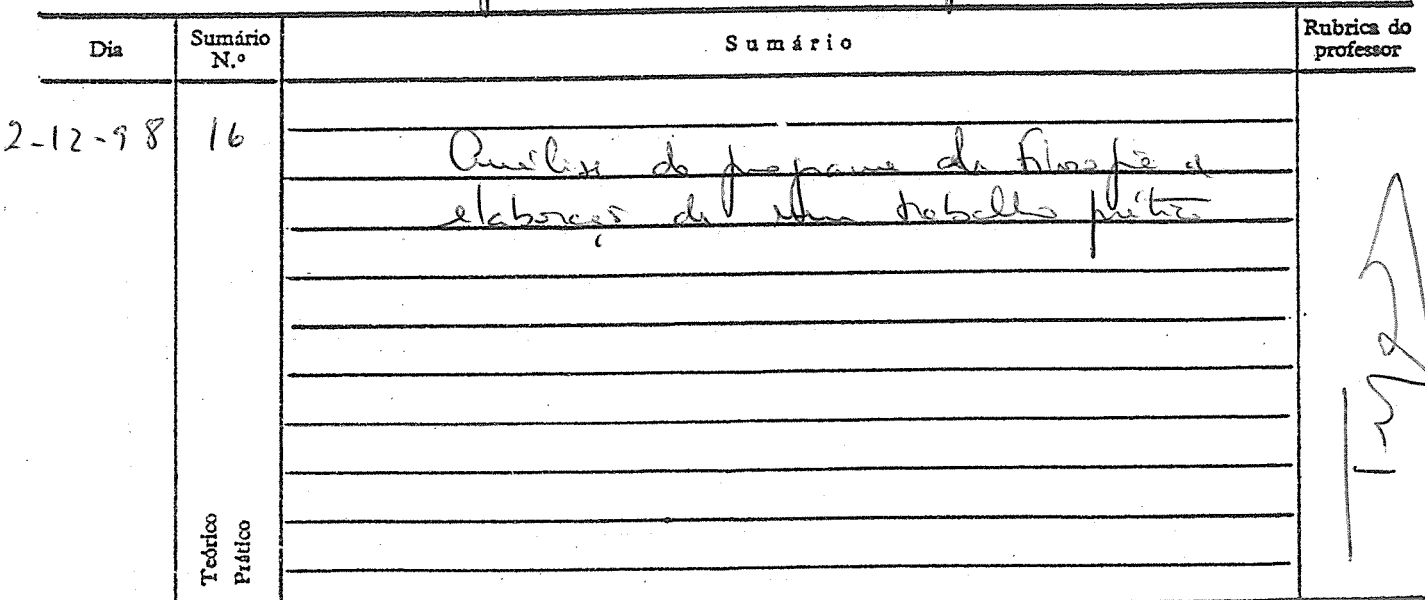 Dia Sumário N.º Sumário Rubrica do professor
2-12-98 16 Análise do programa de Filosofia e
elaboração de um trabalho prático
Teórico
Prático